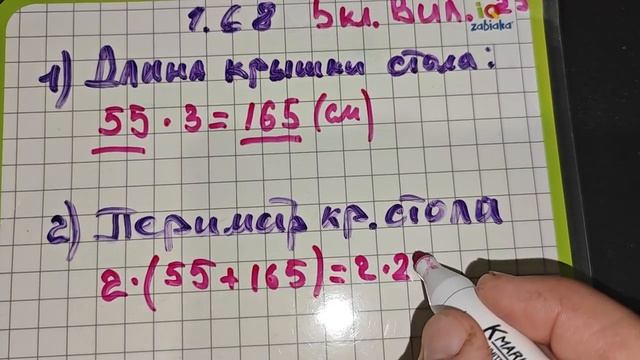 1.68 5 кл. Вил.
zabiaka
1) Длина крышки стола:
55 · 3 = 165 (см)
2) Перимар кр. стола
2 · (55 + 165) = 2 · 2
KMAR